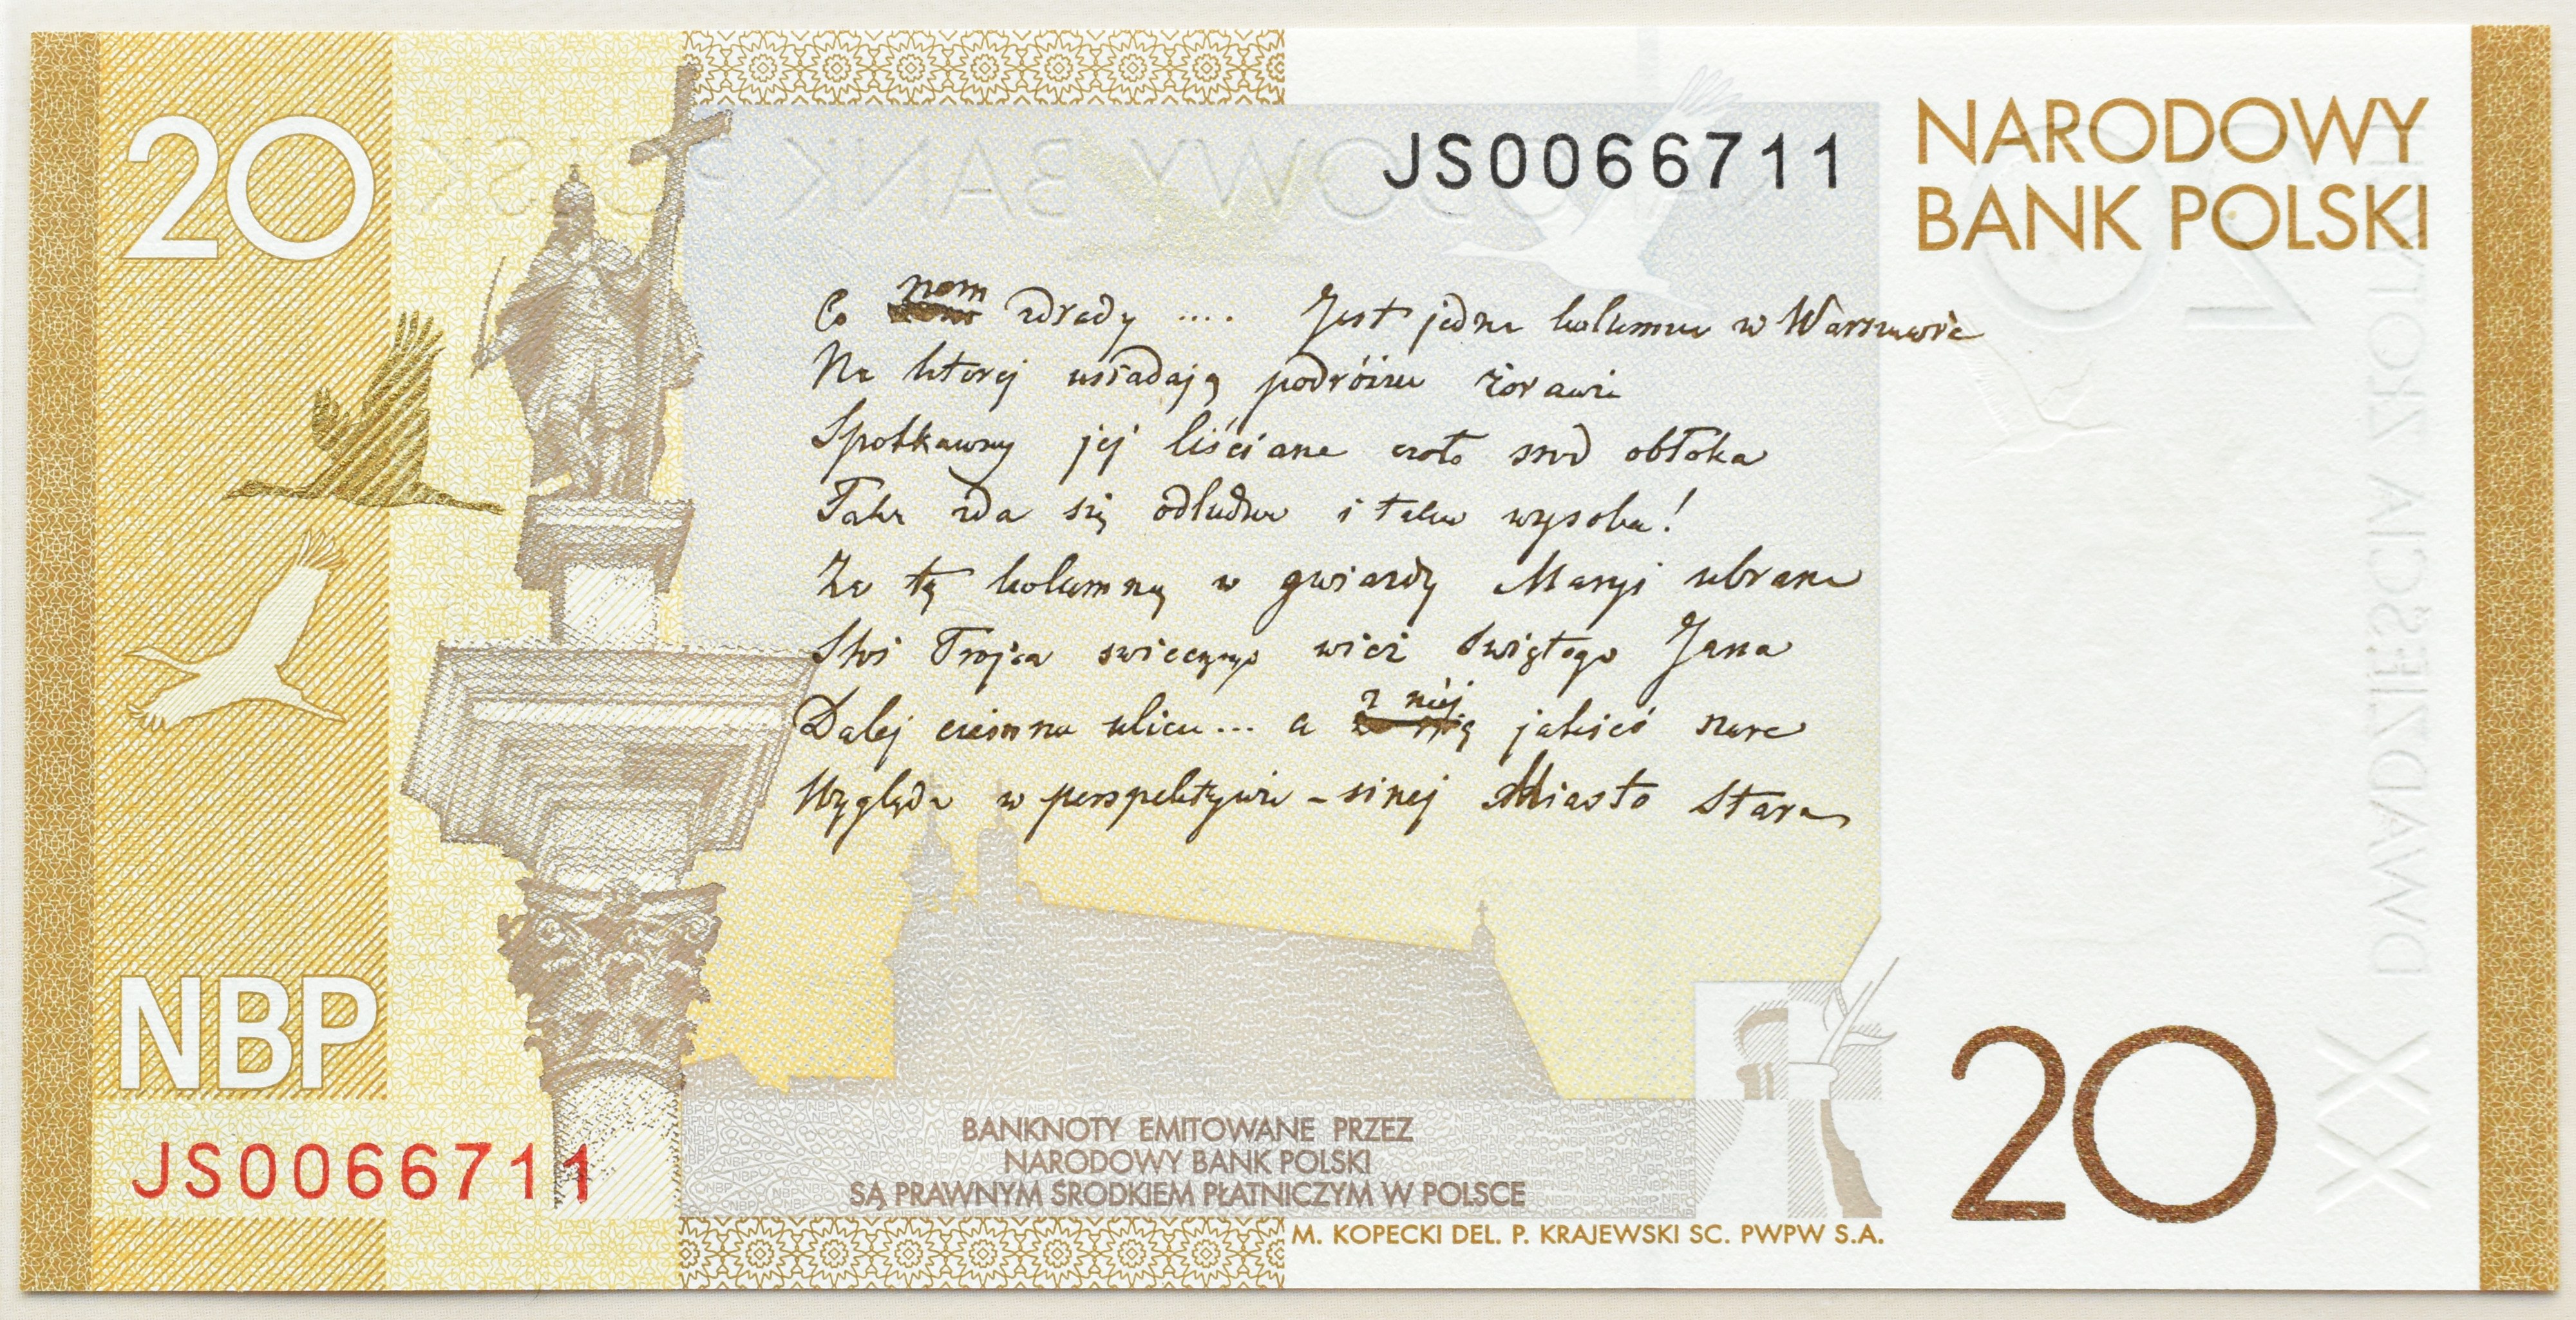 20
NARODOWY
BANK POLSKI
JS0066711
nam
Co zdrady .... Jest jedna kolumna w Warszawie
Na ktorej usiadają podróżne żorawie
Spotkawszy jej liściane czoło srod obłoka
Taka zda się odludna i taka wysoka!
Za tą kolumną w gwiazdy Maryi ubrana
Stoi Trojca swiecznych wież Świętego Jana
z niéj
Dalej ciemna ulica... a jakieś szare
Wygląda w perspektywie - sinej Miasto Stare
NBP
JS0066711
BANKNOTY EMITOWANE PRZEZ
NARODOWY BANK POLSKI
SĄ PRAWNYM ŚRODKIEM PŁATNICZYM W POLSCE
M. KOPECKI DEL. P. KRAJEWSKI SC. PWPW S.A.
20
XX
NARODOWY BANK POLSKI
20
DWADZIEŚCIA ZŁOTYCH